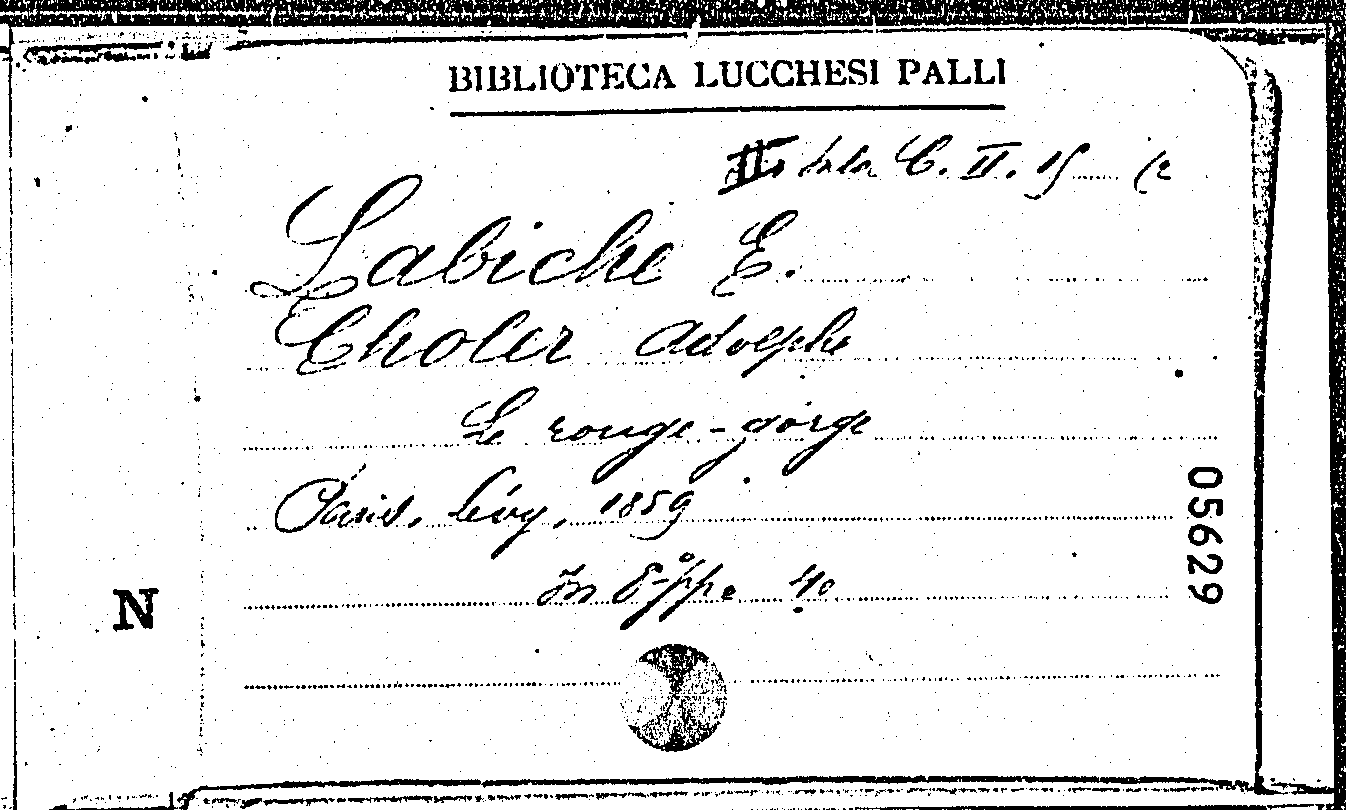 BIBLIOTECA LUCCHESI PALLI
III Sala C. II. 15 (2
Labiche E.
Choler Adolphe
Le rouge-gorge
Paris, Lévy, 1859
In 8º pp. 40
05629
N